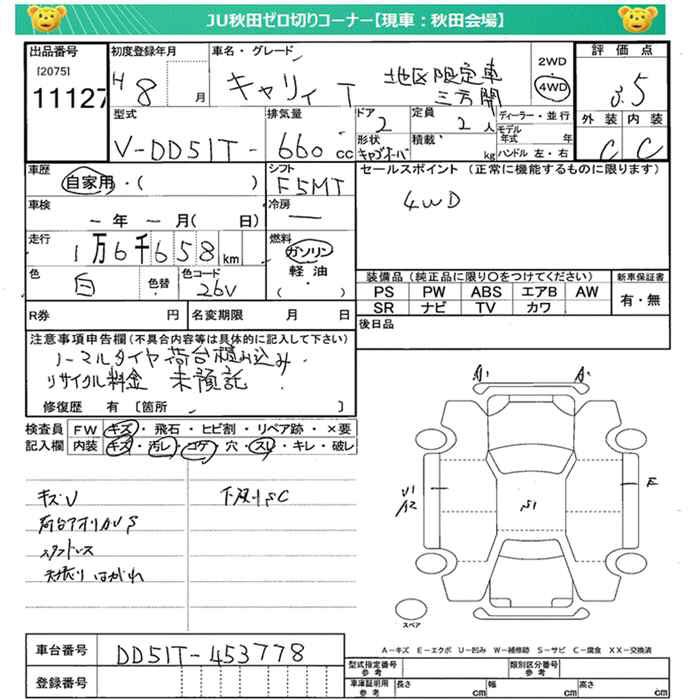 JU秋田ゼロ切りコーナー【現車：秋田会場】
出品番号 初度登録年月 車名・グレード 2WD 評価点
[2075]
11127 H8 月 キャリィ T 地区限定車 三方開 4WD 3.5
型式 排気量 ドア 定員 ディーラー・並行 外装 内装
V-DD51T- 660cc 2 2人 モデル年式 年 C C
形状 積載 ハンドル 左・右
キャブオーバ kg
車歴 シフト セールスポイント（正常に機能するものに限ります）
自家用・（ ） F5MT 4WD
車検 冷房
－年－月（ 日） －
走行 燃料
1万6千658km ガソリン
軽油
（ ）
色 色替 色コード
白 26V
装備品（純正品に限り○をつけてください） 新車保証書
PS PW ABS エアB AW 有・無
SR ナビ TV カワ
R券 円 名変期限 月 日 後日品
注意事項申告欄（不具合内容等は具体的に記入して下さい）
ノーマルタイヤ荷台積み込み
リサイクル料金 未預託
修復歴 有 〔箇所 〕
検査員 FW キズ・飛石・ヒビ割・リペア跡・×要
記入欄 内装 キズ・汚レ・コゲ・穴・スレ・キレ・破レ
A1 A1
キズV 下廻りSC
荷台アオリカVS
U1
A2
S1
E
はがれ
スペア
A－キズ E－エクボ U－凹み W－補修跡 S－サビ C－腐食 XX－交換済
車台番号 DD51T-453778
登録番号
型式指定番号 参考 類別区分番号 参考
車庫証明用 参考 長さ cm 幅 cm 高さ cm